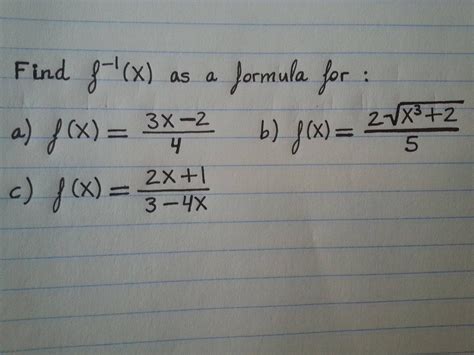 Find f⁻¹(x) as a formula for :
a) f(x) = (3x-2)/4    b) f(x) = (2√(x³+2))/5
c) f(x) = (2x+1)/(3-4x)